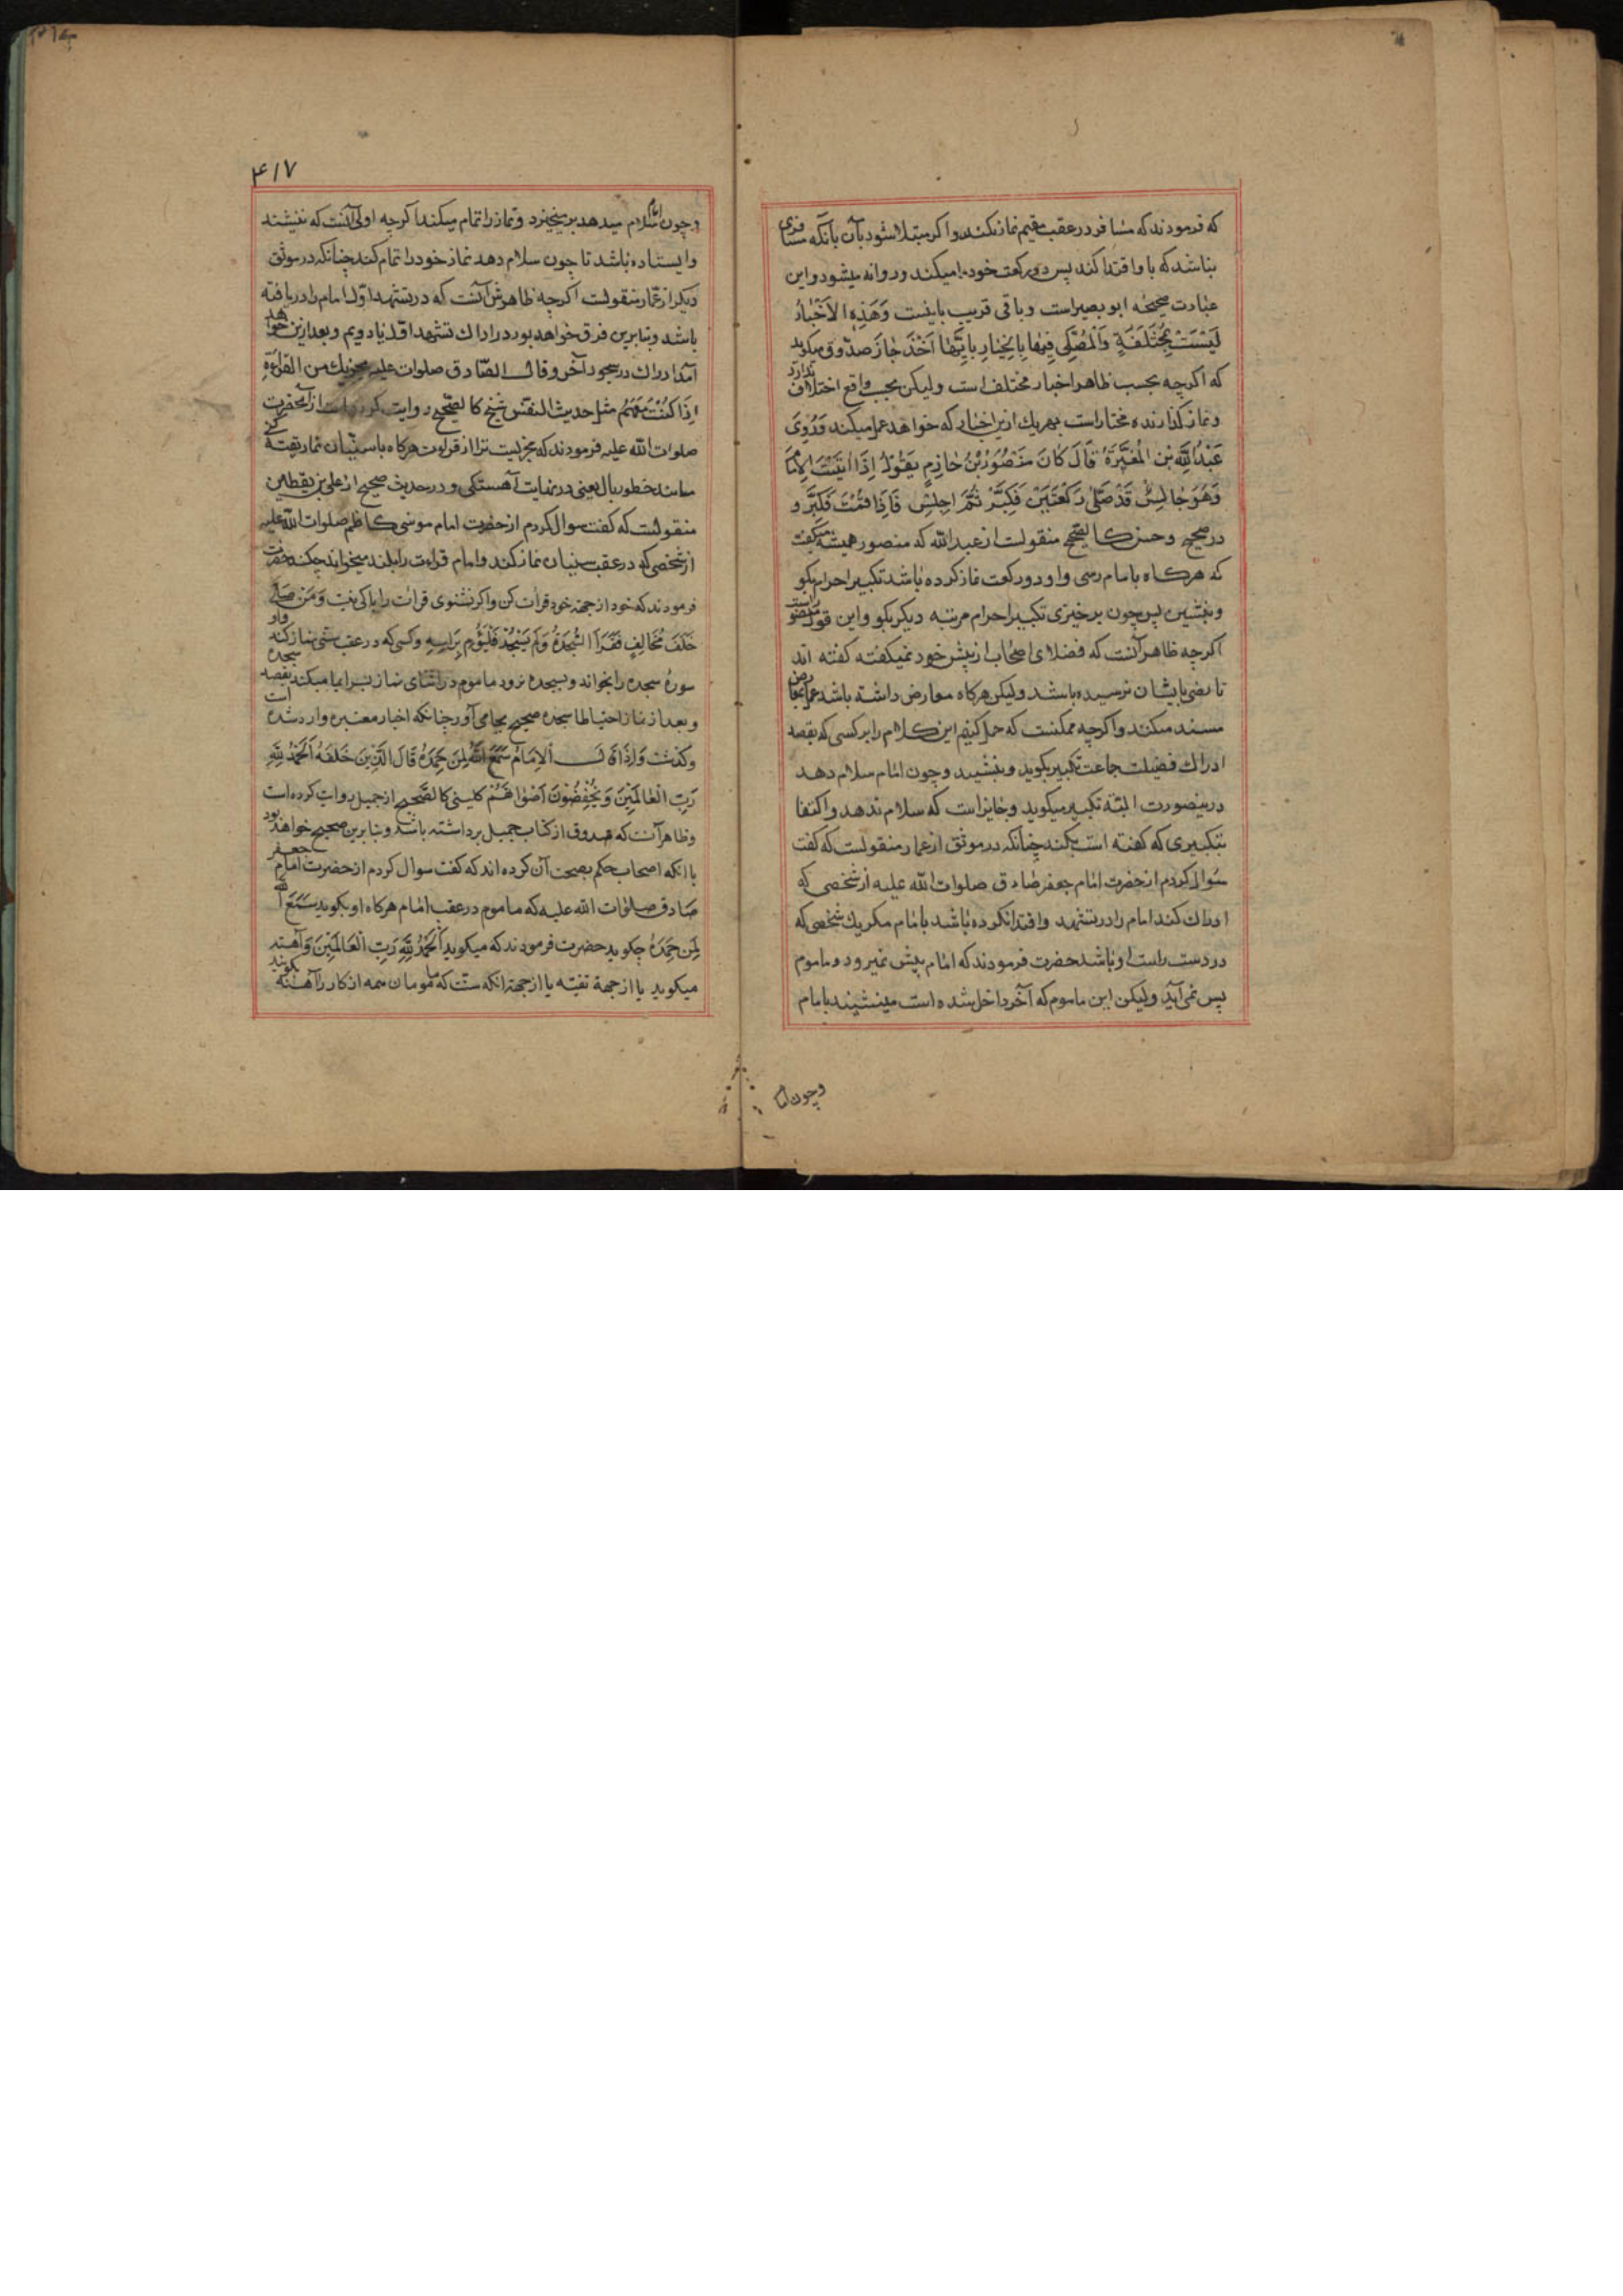 که فرمودند که مسافر در عقب مقیم نماز نکند و اکر مبتلا شود بآن بآنکه مسافری
نباشد که باو اقتدا کند پس دو رکعت خود را میکند و روانه میشود و این
عبارت صحیحه ابو بصیر است و باقی قریب باینست وَهَذِهِ الاَخْبارُ
لَیْسَتْ بِمُخْتَلَفَةٍ وَالْمُصَلّی فِیها بِالخِیارِ بِایِّها اَخَذَ جازَ صدوق میکوید
که اکرچه بحسب ظاهر اخبار مختلف است ولیکن بحسب واقع اختلاف ندارد
و نماز کذارنده مختار است بهر یك ازین اخبار که خواهد عمل میکند وَرُوِیَ
عَبْدُ اللّهِ بْنِ الْمُغیَرَةِ قالَ کانَ مَنْصُورُ بْنُ حازِمٍ یَقُولُ اِذا اَتَیْتَ الاِمامَ
وَهُوَ جالِسٌ قَدْ صَلّی رَکْعَتَیْنِ فَکَبِّرْ ثُمَّ اجْلِسْ فَاِذا قُمْتَ فَکَبِّرْ و
در صحیح و حسن کالصحیح منقولست از عبد الله که منصور همیشه میکفت
که هرکاه بامام رسی و او دو رکعت نماز کرده باشد تکبیر احرام بکو
و بنشین پس چون برخیزی تکبیر احرام مرتبه دیکر بکو و این قول منصور است
اکرچه ظاهر آنست که فضلای اصحاب از پیش خود نمیکفته کفته اند
تا نصی بایشان نرسیده باشد ولیکن هرکاه معارض داشته باشد عمل بمعارض
مسند میکنند و اکرچه ممکنست که حمل کنیم این کلام را بر کسی که بقصد
ادراك فضیلت جماعت تکبیر بکوید و بنشیند و چون امام سلام دهد
درینصورت البته تکبیر میکوید و جایز است که سلام ندهد و اکتفا
بتکبیری که کفته است بکند چنانکه در موثق از عمار منقولست که کفت
سوال کردم از حضرت امام جعفر صادق صلوات الله علیه از شخصی که
ادراك کند امام را در تشهد و اقتدا نکرده باشد بامام مکر یك شخصی که
در دست راست او باشد حضرت فرمودند که امام پیش نمیرود و ماموم
پس نمی آید ولیکن این ماموم که آخر داخل شده است مینشیند با امام
و چون امام
۴۱۷
و چون امام سلام میدهد برمیخیزد و نماز را تمام میکند اکرچه اولی آنست که ننشیند
و ایستاده باشد تا چون سلام دهد نماز خود را تمام کند چنانکه در موثق
دیکر از عمار منقولست اکرچه ظاهرش آنست که در تشهد اول امام را دریافته
باشد و بنا برین فرق خواهد بود در ادراك تشهد اول یا دویم و بعد ازین خواهد
آمد ادراك در سجود آخر وقال الصّادق صلوات علیه یجزیك من القراءةِ
اِذا کُنْتَ مَعَهُمْ مثل حدیث النفس شیخ کالصحیح روایت کرده است از آنحضرت
صلوات الله علیه فرمودند که مجزیست ترا از قراءت هرکاه با سنّیان نماز بتقیه کنی
مانند خطور ببال یعنی در نهایت آهستکی و در حدیث صحیح از علی بن یقطین
منقولست که کفت سوال کردم از حضرت امام موسی کاظم صلوات الله علیه
از شخصی که در عقب سنیان نماز کند و امام قراءت را بلند میخواند چکند حضرت
فرمودند که خود از جهة خود قرائت کن و اکر نشنوی قرائت را باکی نیست وَمَن صَلّی
خَلفَ مُخالِفٍ فَقَرَأَ السَّجدَةَ وَلَم یَسْجُدْ فَلْیُؤُمِ بِرَاسِهِ وکسی که در عقب سنی نماز کند و او
سورهٔ سجده را بخواند و بسجده نرود ماموم در اثنای نماز بسر ایما میکند بقصد سجده
و بعد از نماز احتیاطا سجده صحیح بجامی آورد چنانکه اخبار معتبره وارد شده است
وکذشت وَاِذا قالَ الاِمامُ سَمِعَ اللّهُ لِمَن حَمِدَهُ قالَ الَّذِینَ خَلفَهُ اَلحَمْدُ لِلّهِ
رَبِّ الْعالَمِینَ وَیُخْفِضُونَ اَصْواتَهُمْ کلینی کالصحیح از جمیل روایت کرده است
وظاهر آنست که صدوق از کتاب جمیل برداشته باشد و بنا برین صحیح خواهد بود
با انکه اصحاب حکم بصحت آن کرده اند که کفت سوال کردم از حضرت امام جعفر
صادق صلوات الله علیه که ماموم در عقب امام هرکاه او بکوید سَمِعَ اللّه
لِمَن حَمِدَهُ چکوید حضرت فرمودند که میکوید اَلْحَمْدُ لِلّهِ رَبِّ الْعالَمِینَ وَآهسته
میکوید یا از جهة تقیه یا از جهة انکه سنّت که مامومان همه اذکار را آهسته بکویند